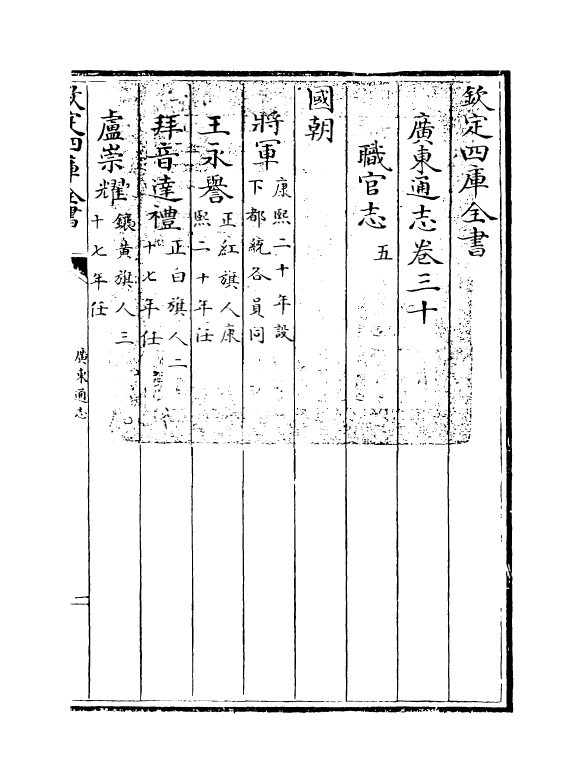 欽定四庫全書
廣東通志卷三十
職官志 五
國朝
將軍 康熙二十年設下都統各員同
王永譽 正紅旗人康熙二十年任
拜音達禮 正白旗人二十七年任
盧崇耀 鑲黃旗人三十七年任
欽定四庫全書
廣東通志